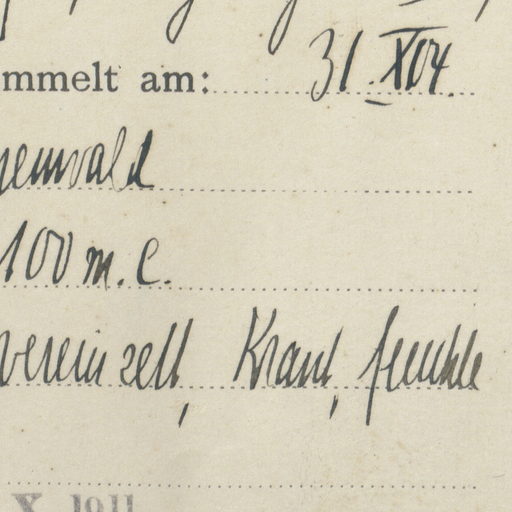 mmelt am: 31.X04.
nenwald
100 m.e.
vereinzelt, Kraut, feuchte
X 1911